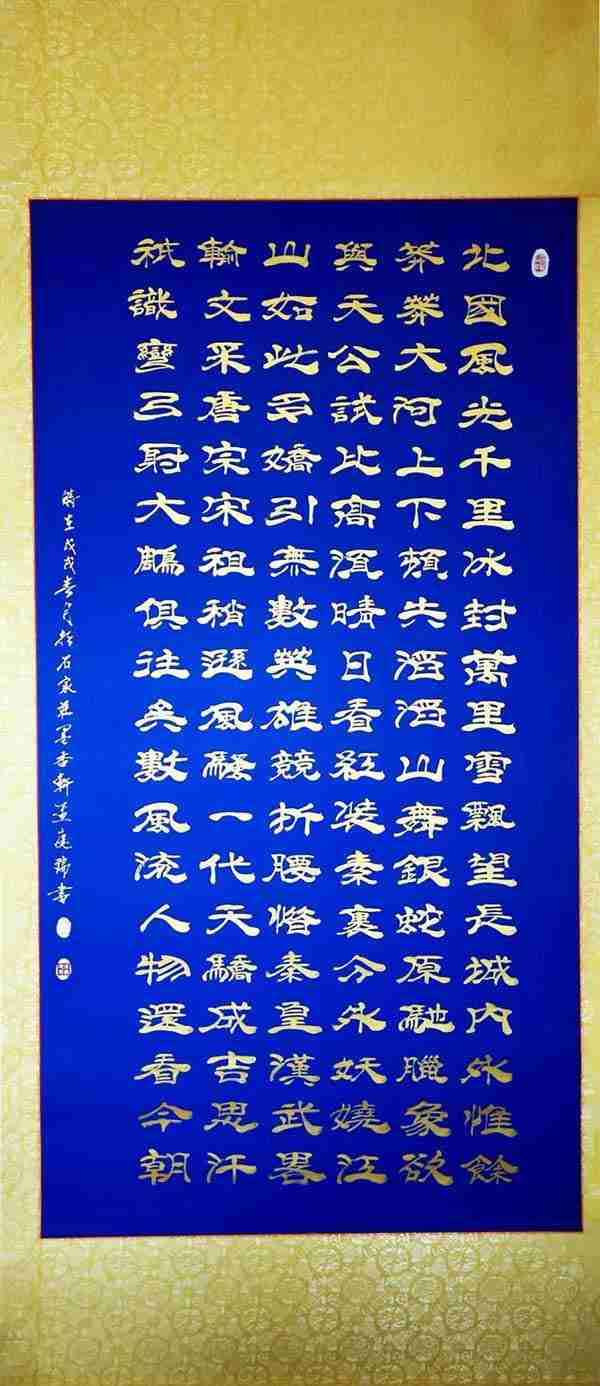 北國風光千里冰封萬里雪飄望長城內外惟餘
莽莽大河上下頓失滔滔山舞銀蛇原馳臘象欲
與天公試比高須晴日看紅裝素裹分外妖嬈江
山如此多嬌引無數英雄競折腰惜秦皇漢武畧
輸文采唐宗宋祖稍遜風騷一代天驕成吉思汗
衹識彎弓射大鵰俱往矣數風流人物還看今朝
時在戊戌春月於石家莊墨香軒書